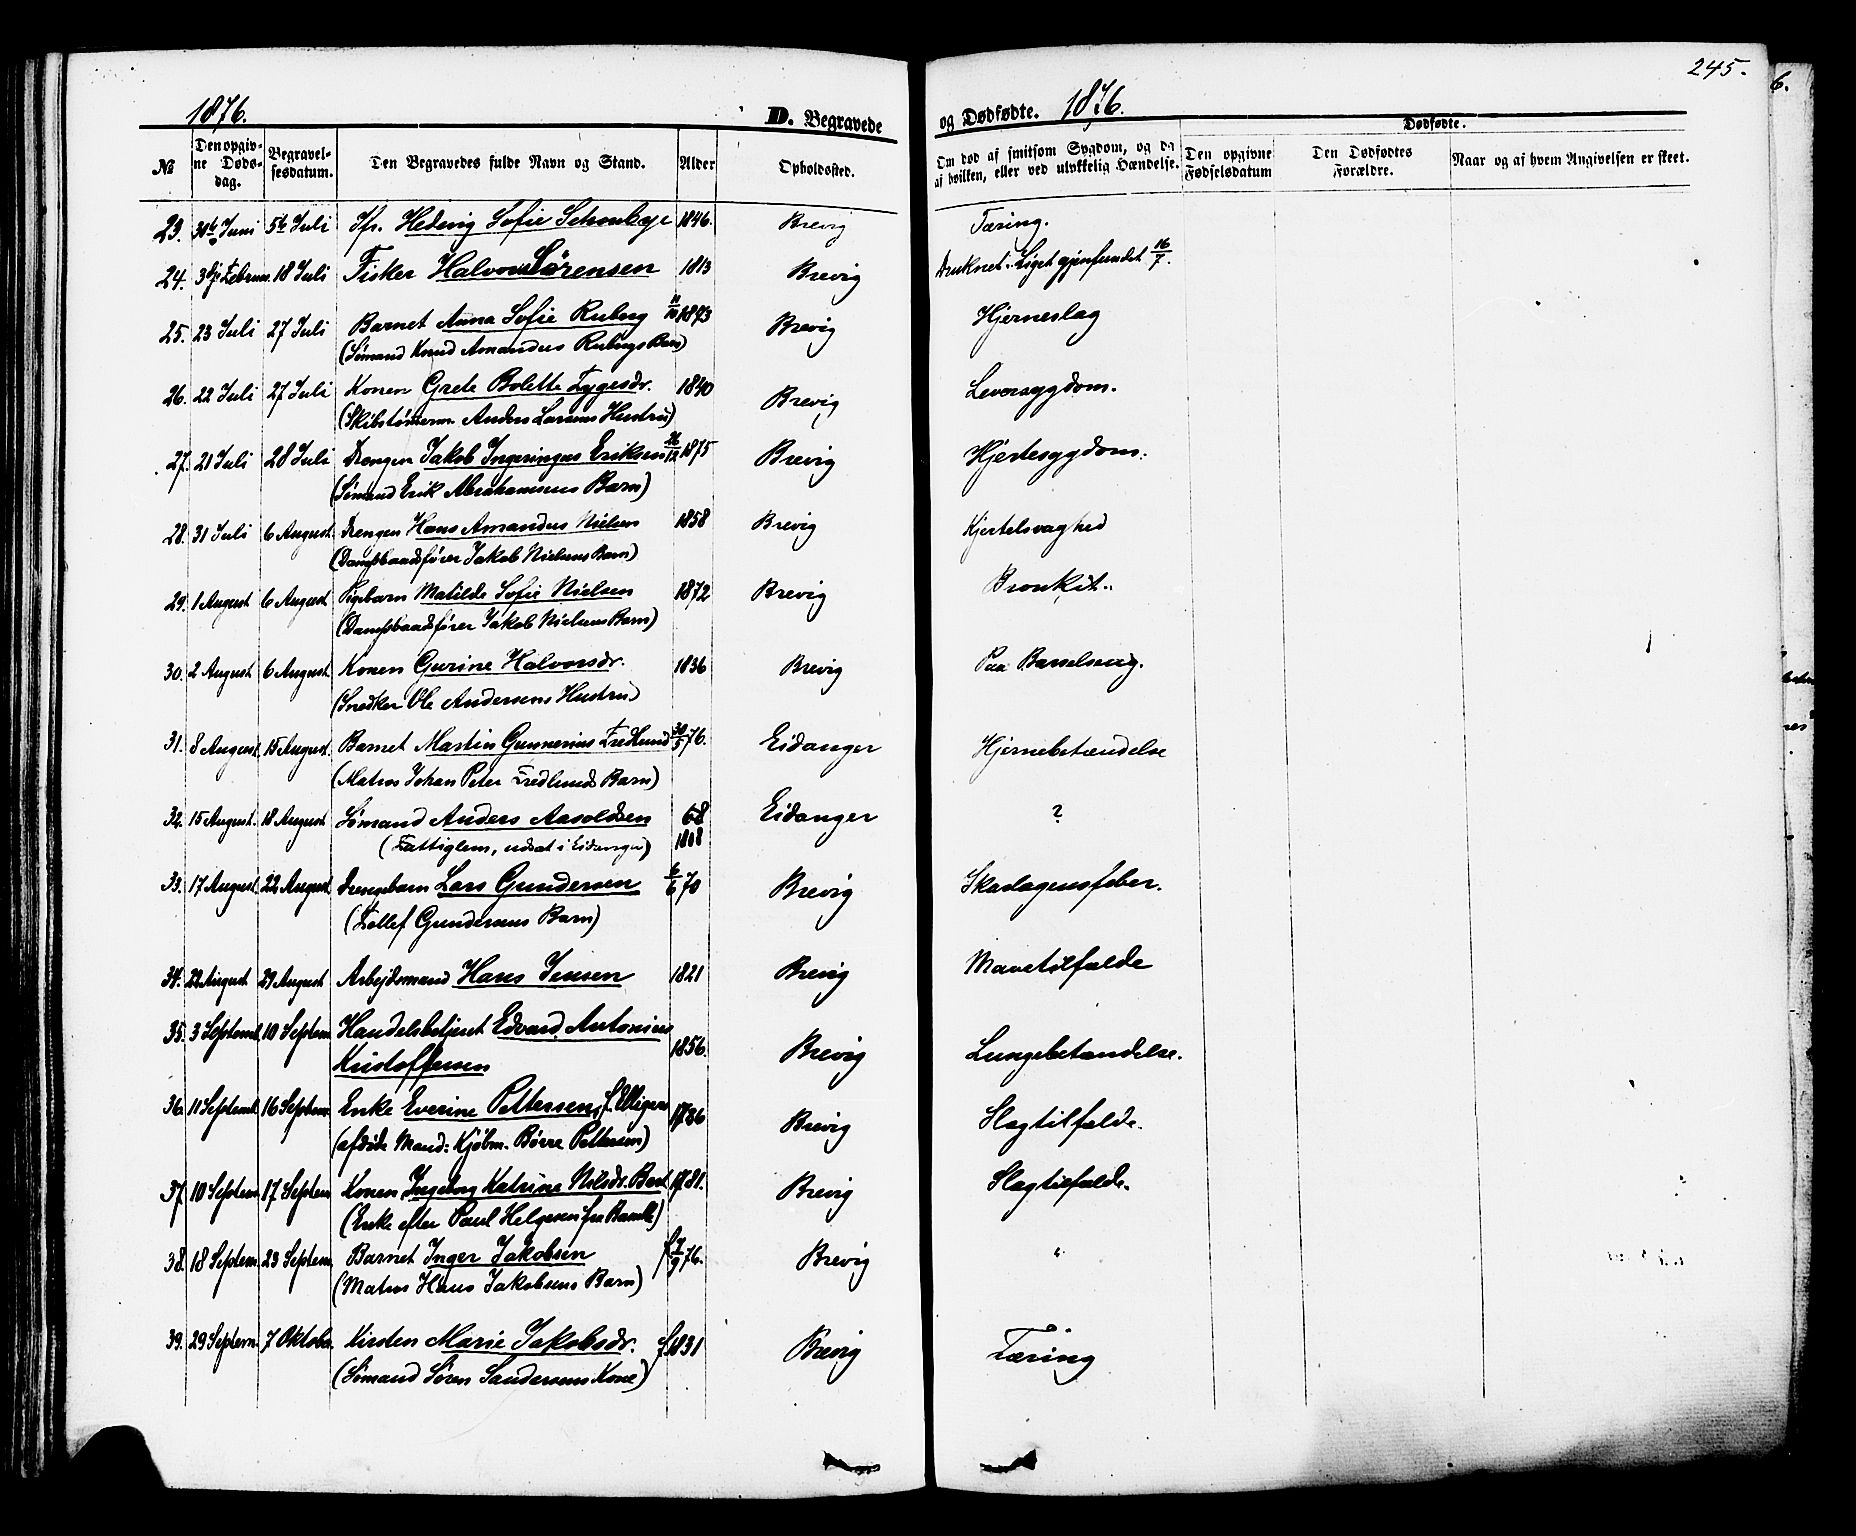 245.
1876. D. Begravede og Dødfødte. 1876.
Dødfødte.
No Den opgivne Dødsdag. Begravelsesdatum. Den Begravedes fulde Navn og Stand. Alder Opholdssted. Om død af smitsom Sygdom, og da af hvilken, eller ved ulykkelig Hændelse. Den opgivne Fødselsdatum Den Dødfødtes Forældre. Naar og af hvem Angivelsen er skeet.
23. 30te Juni 5te Juli Jfr. Hedevig Sofie 1846. Brevig Tæring.
24. 3dj Februar. 18 Juli Fisker Halvor Sörensen 1813 Brevig Druknet. Liget gjenfundet 16/7.
25. 23 Juli 27 Juli Barnet Anna Sofie Ruberg 11/10 1873 Brevig Hjerneslag
(Sömand Knud Amandus Rubergs Barn)
26. 22 Juli 27 Juli Konen Grete Bolette Tygesdr. 1840 Brevig Leversygdom.
(Skibstömrerm. Anders Larsens Hustru)
27. 21 Juli 28 Juli Drengen Jakob Eriksen 26/12 1875 Brevig Hjertesygdom.
(Sömand Erik Abrahamsens Barn)
28. 31 Juli 6 August. Drengen Hans Amandus Nielsen 1858 Brevig Kjertelsvaghed
(Dampbaadsfører Jakob Nielsens Barn)
29. 1 August 6 August Pigebarn Matilde Sofie Nielsen 1872 Brevig Bronkit.
(Dampbaadsfører Jakob Nielsens Barn)
30. 2 August 6 August. Konen Gurine Halvorsdr. 1836 Brevig Paa Barselseng.
(Snedker Ole Andersens Hustru)
31. 8 August. 15 August. Barnet Martin Gunnerius Fredlund 30/5 76. Eidanger Hjernebetændelse
(Matros Johan Peter Fredlunds Barn)
32. 15 August. 18 August Sömand Anders Aasoldsen 68 Eidanger ?
(Fattiglem, udsat i Eidanger) 1808
33. 17 August. 22 August. Drengebarn Lars Gundersen 6/6 70 Brevig Skarlagensfeber.
(Tollef Gundersens Barn)
34. 22 August 29 August Arbejdsmand Hans Jensen 1821 Brevig Mavetilfælde
35. 3 Septemb. 10 Septem. Handelsbetjent Edvard Antonius Kristoffersen 1856. Brevig Lungebetændelse.
36. 11 Septemb. 16 Septem. Enke Everine Pettersen, f. Elligers 1786 Brevig Slagtilfælde.
(afdöde Mand: Kjöbm. Börre Pettersen)
37. 10 Septem. 17 Septem Konen Ingeborg Katrine Nilsdr. 1781. Brevig Slagtilfælde.
(Enke efter Paul Helgesen fra Bamble)
38. 18 Septem. 23 Septem. Barnet Inger Jakobsen f. 7/9 76. Brevig "
(Matros Hans Jakobsens Barn)
39. 29 Septem. 7 Oktober. Kirsten Marie Jakobsdr. f. 1831 Brevig Tæring
(Sömand Sören Sandersens Kone)